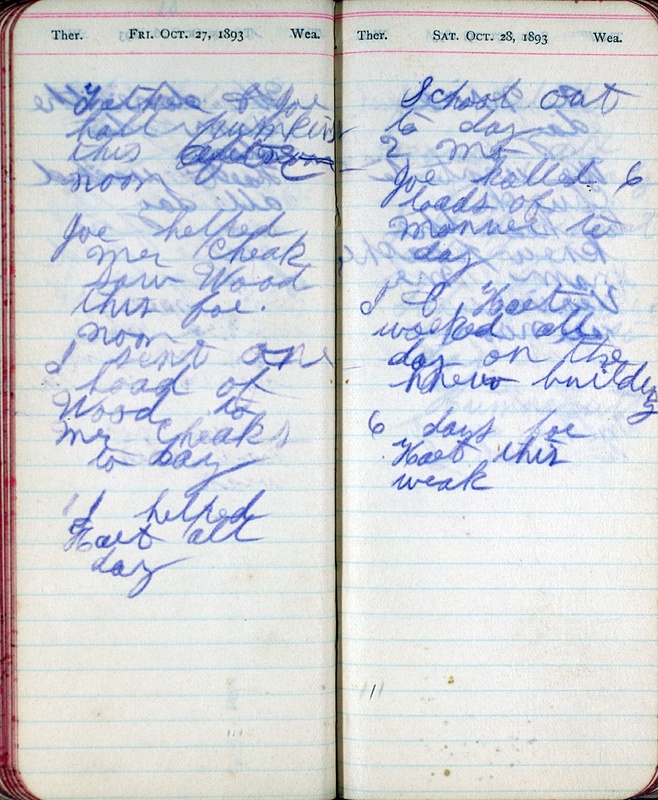 Ther. FRI. OCT. 27, 1893 Wea.
Father & Joe
hall punkins
this
noon
Joe helped
Mr Cheak
Saw Wood
this foe.
noon
I sent one
load of
Wood to
Mr Cheaks
to day
I helped
Haet all
day
Ther. SAT. OCT. 28, 1893 Wea.
School out
to day
2 mo
Joe halled 6
loads of
Manure to
day
I & Haet
worked all
day on the
knew building
6 days foe
Haet this
weak